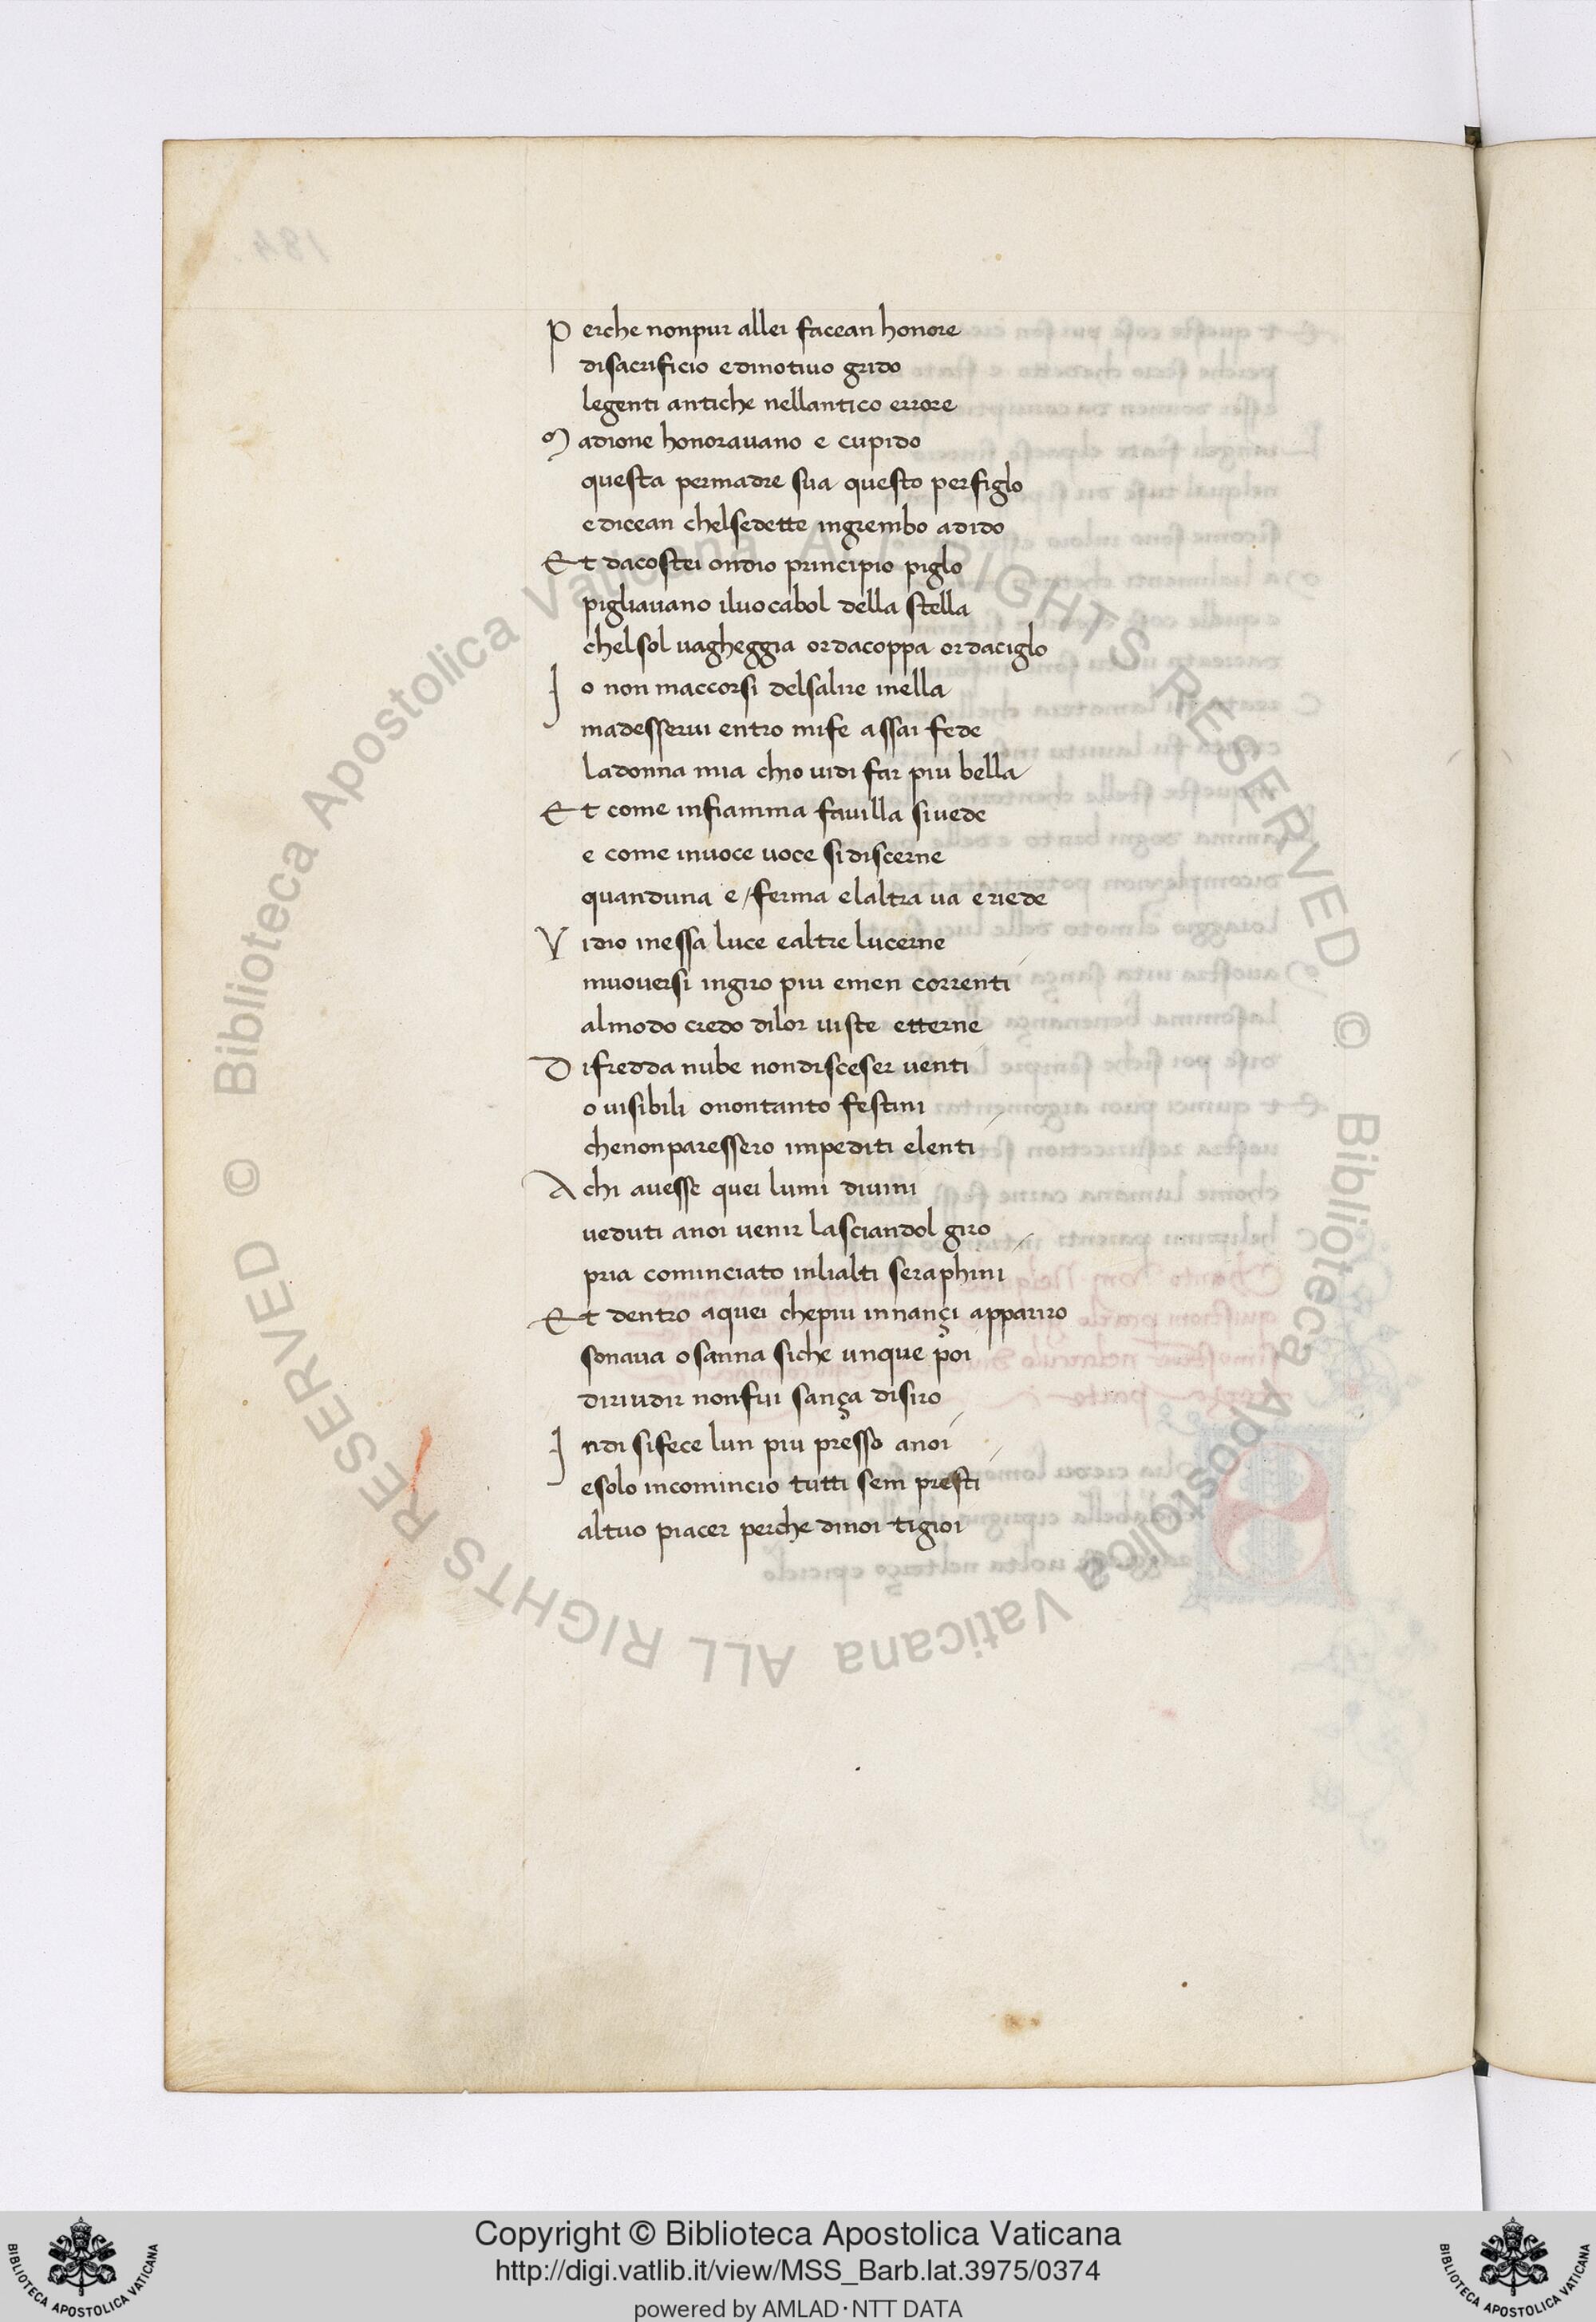 Perche nonpur allei facean honore
disacrificio edinotiuo grido
legenti antiche nellantico errore
Madione honorauano e cupido
questa permadre sua questo perfiglo
edicean chelsedette ingrembo adido
Et dacostei ondio principio piglo
pigliauano iluocabol della stella
chelsol uagheggia ordacoppa ordaciglo
Io non maccorsi delsalire inella
madesserui entro mife assai fede
ladonna mia chio uidi far piu bella
Et come infiamma fauilla siuede
e come inuoce uoce sidiscerne
quanduna e/ferma elaltra ua eriede
Vidio inessa luce ealtre lucerne
muouersi ingiro piu emen correnti
almodo credo dilor uiste etterne
Difredda nube nondisceser uenti
o uisibili onontanto festini
chenonparessero impediti elenti
A chi auesse quei lumi diuini
ueduti anoi uenir lasciandol giro
pria cominciato inlialti seraphini
Et dentro aquei chepiu innançi appariro
sonaua osanna siche unque poi
diriudir nonfui sança disiro
Indi sifece lun piu presso anoi
esolo incomincio tutti sem presti
altuo piacer perche dinoi tigioi
Copyright © Biblioteca Apostolica Vaticana
http://digi.vatlib.it/view/MSS_Barb.lat.3975/0374
powered by AMLAD·NTT DATA